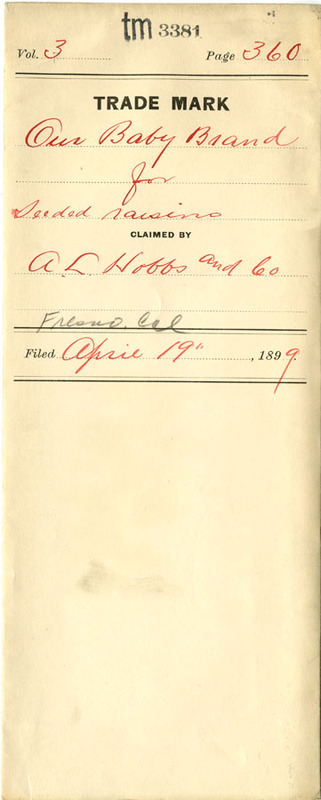 tm 3381
Vol. 3 Page 360
TRADE MARK
Our Baby Brand
for
Seeded raisins
CLAIMED BY
A L Hobbs and Co
Fresno. Cal
Filed April 19", 1899.